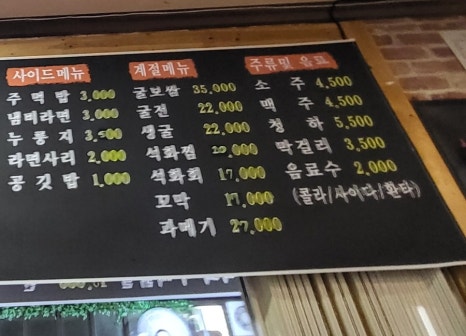 사이드메뉴
주먹밥 3,000
냄비라면 3,000
누룽지 3,500
라면사리 2,000
공깃밥 1,000
계절메뉴
굴보쌈 35,000
굴전 22,000
생굴 22,000
석화찜 20,000
석화회 17,000
꼬막 17,000
과메기 27,000
주류및 음료
소주 4,500
맥주 4,500
청하 5,500
막걸리 3,500
음료수 2,000
(콜라/사이다/환타)